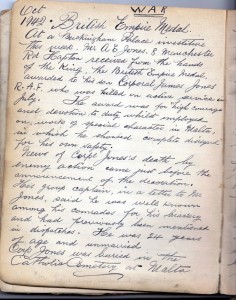 Oct
1943
WAR
British Empire Medal.
At a Buckingham Palace investiture
this week, Mr A. E. Jones, 8 Manchester
Rd Hapton received from the hands
of the King, the British Empire Medal
awarded to his son Corporal James Jones
R.A.F. who was killed on active service in
July. The award was for high courage
and devotion to duty whilst employed
on works of special character in Malta,
in which he showed complete disregard
for his own safety.
News of Corpl Jones's death by
enemy action came just before the
announcement of the decoration.
His group captain, in a letter to Mr
Jones, said he was well known
among his comrades for his bravery
and had previously been mentioned
in dispatches. He was 24 years
of age and unmarried.
Corpl Jones was buried in the
Catholic Cemetery at Malta